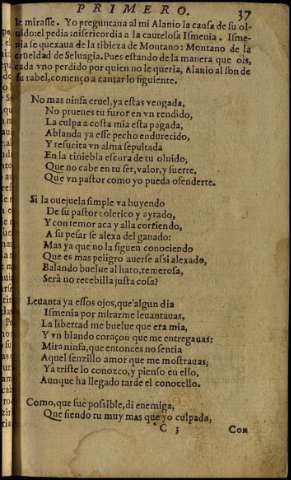 PRIMERO. 37
le mirasse. Yo preguntaua al mi Alanio la causa de su ol-
uido: el pedia misericordia a la cautelosa Ismenia. Isme-
nia se quexaua de la tibieza de Montano: Montano de la
crueldad de Seluagia. Pues estando de la manera que ois,
cada vno perdido por quien no le queria, Alanio al son de
su rabel, començo a cantar lo siguiente.
No mas ninfa cruel, ya estas vengada,
No prueues tu furor en vn rendido,
La culpa a costa mia esta pagada,
Ablanda ya esse pecho endurecido,
Y resucita vn alma sepultada
En la tiniebla escura de tu oluido,
Que no cabe en tu ser, valor, y suerte,
Que vn pastor como yo pueda ofenderte.
Si la ouejuela simple va huyendo
De su pastor colerico y ayrado,
Y con temor aca y alla corriendo,
A su pesar se alexa del ganado:
Mas ya que no la siguen conociendo
Que es mas peligro auerse assi alexado,
Balando buelue al hato, temerosa,
Será no recebilla justa cosa?
Leuanta ya essos ojos, que algun dia
Ismenia por mirarme leuantauas,
La libertad me buelue que era mia,
Y vn blando coraçon que me entregauas:
Mira ninfa, que entonces no sentia
Aquel senzillo amor que me mostrauas,
Ya triste lo conozco, y pienso en ello,
Aunque ha llegado tarde el conocello.
Como, que fue possible, di enemiga,
Que siendo tu muy mas que yo culpada,
C 3 Con